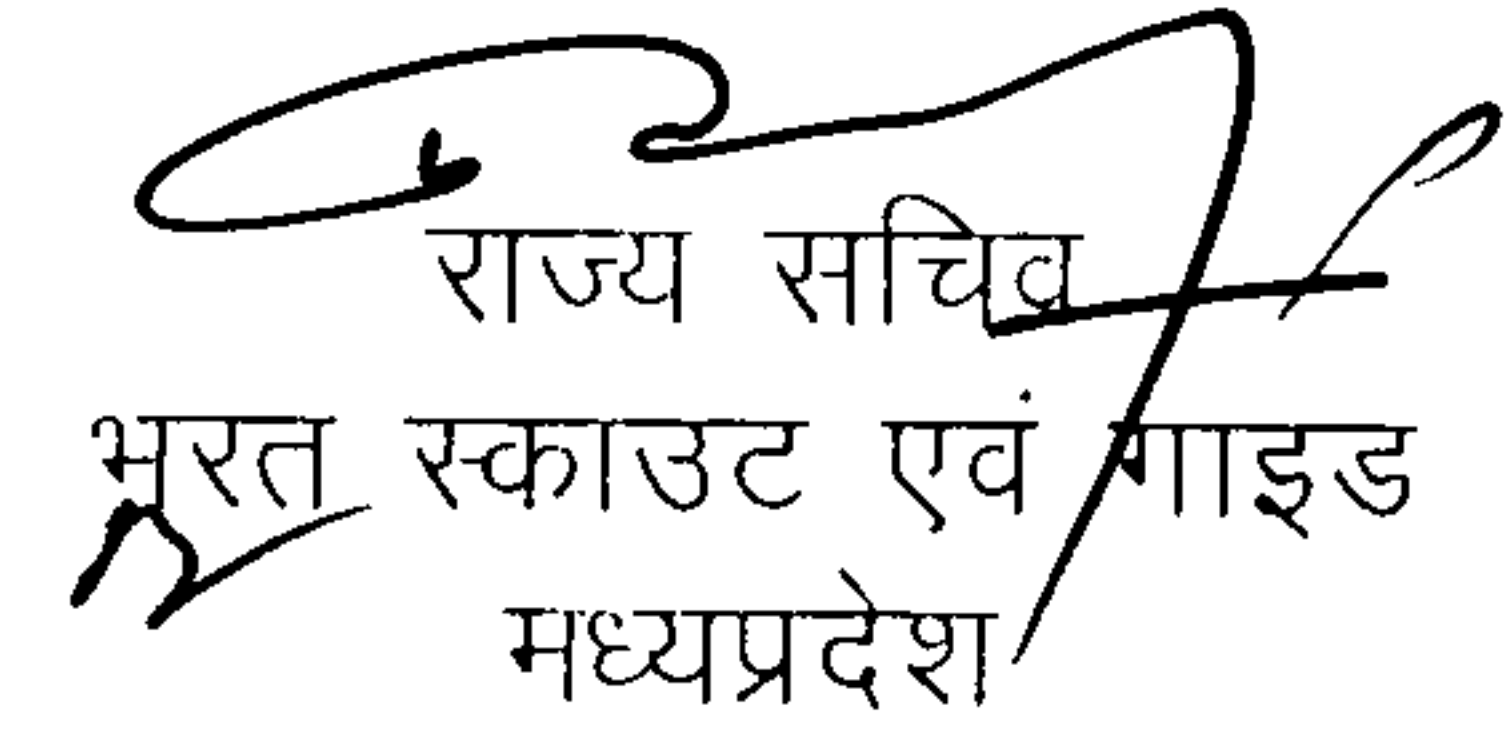 राज्य सचिव
भरत स्काउट एवं गाइड
मध्यप्रदेश